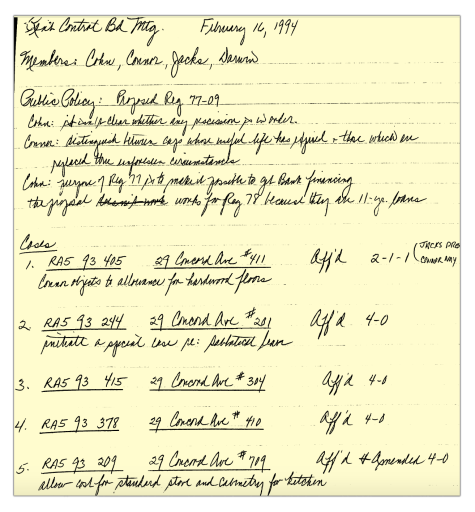 Rent Control Bd Mtg. February 16, 1994
Members: Cohn, Connor, Jacks, Darwin
Public Policy: Proposed Reg 77-09
Cohn: it isn't clear whether any rescission is in order.
Connor: distinguish between caps whose useful life has expired + those which are
replaced thru unforeseen circumstances
Cohn: purpose of Reg 77 is to make it possible to get Bank financing
the proposal works for Reg 78 because they are 11-yr. loans
Cases
1. RA5 93 405 29 Concord Ave #411 Aff'd 2-1-1 (JACKS
CONNOR NAY
Connor objects to allowance for hardwood floors
2. RA5 93 244 29 Concord Ave #201 Aff'd 4-0
initiate a special case re: sabbatical leave
3. RA5 93 415 29 Concord Ave #304 Aff'd 4-0
4. RA5 93 378 29 Concord Ave #410 Aff'd 4-0
5. RA5 93 209 29 Concord Ave #709 Aff'd & Amended 4-0
allow cost for standard stove and cabinetry for kitchen